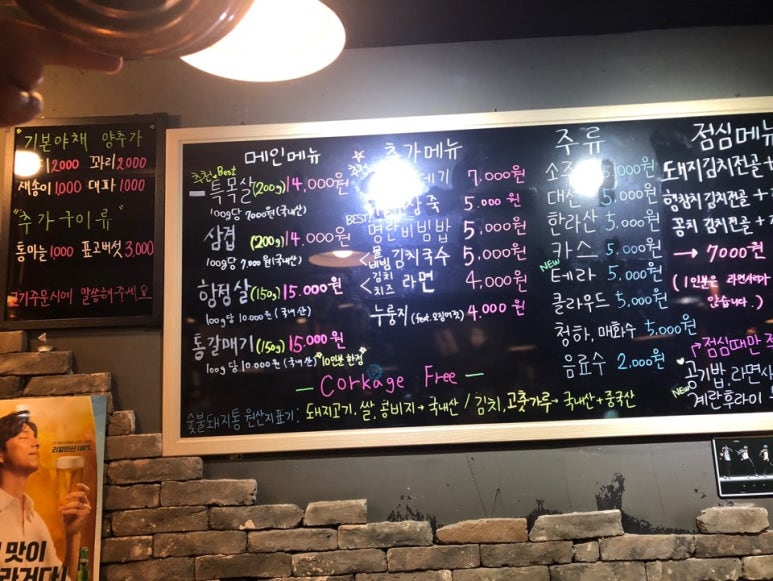 기본야채 양추가
2,000 꽈리 2,000
새송이 1,000 대파 1000
"추가구이류"
통마늘 1000 표고버섯 3,000
기주문시에 말씀해주세요
메인메뉴
추천 Best
특목살 (200g) 14,000원
100g당 7,000원 (국내산)
삼겹 (200g) 14,000원
100g당 7,000원 (국내산)
항정살 (150g) 15,000원
100g당 10,000원 (국내산)
통갈매기 (150g) 15,000원
100g당 10,000원 (국내산) *10인분 한정*
추가메뉴
추천
7,000원
죽 5,000원
BEST!
명란비빔밥 5,000원
물 비빔 < 김치국수 5,000원
김치 치즈 < 라면 4,000원
누룽지 (feat.오징어젓) 4,000원
주류
5,000원
대선 5,000원
한라산 5,000원
카스 5,000원
NEW
테라 5,000원
클라우드 5,000원
청하, 매화수 5,000원
음료수 2,000원
점심메뉴
돼지김치전골 +
햄참치 김치전골 +
꽁치 김치전골 +
→ 7000원
(1인분은 라면사리가
않습니다.)
↱점심때만
NEW
고기밥, 라면사
계란후라이
— Corkage Free —
숯불돼지통 원산지표기: 돼지고기, 쌀, 콩비지→국내산 / 김치, 고춧가루→국내산+중국산
리얼탄산 100%
맛이
라거다!